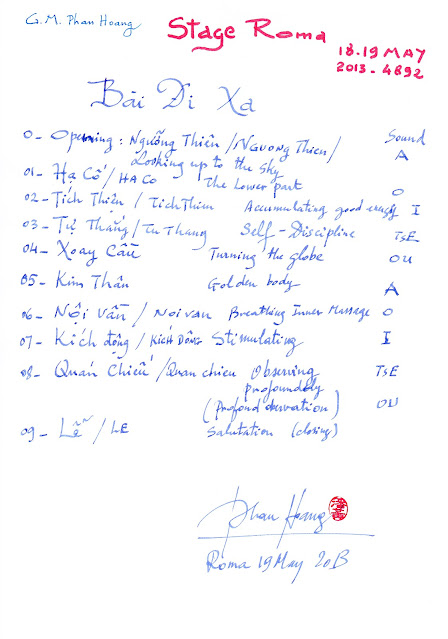 G.M. Phan Hoang
Stage Roma
18.19 MAY
2013 - 4892
Bài Đi Xa
Sound
0 - Opening : Ngưỡng Thiên / NGUONG Thien / A
Looking up to the sky
01 - Hạ Cố / HA CO The Lower part O
02 - Tích Thiện / Tich Thien Accumulating good energy I
03 - Tự Thắng / Tu Thang Self - Discipline TSE
04 - Xoay Cầu Turning the globe OU
05 - Kim Thân Golden body A
06 - Nội Vấn / Noi van Breathing Inner Massage O
07 - Kích động / KICH DÔNG Stimulating I
08 - Quán Chiếu / Quan chieu Observing TSE
profoundly
(Profond observation) OU
09 - Lễ / LE Salutation (closing)
Phan Hoang
Roma 19 May 2013